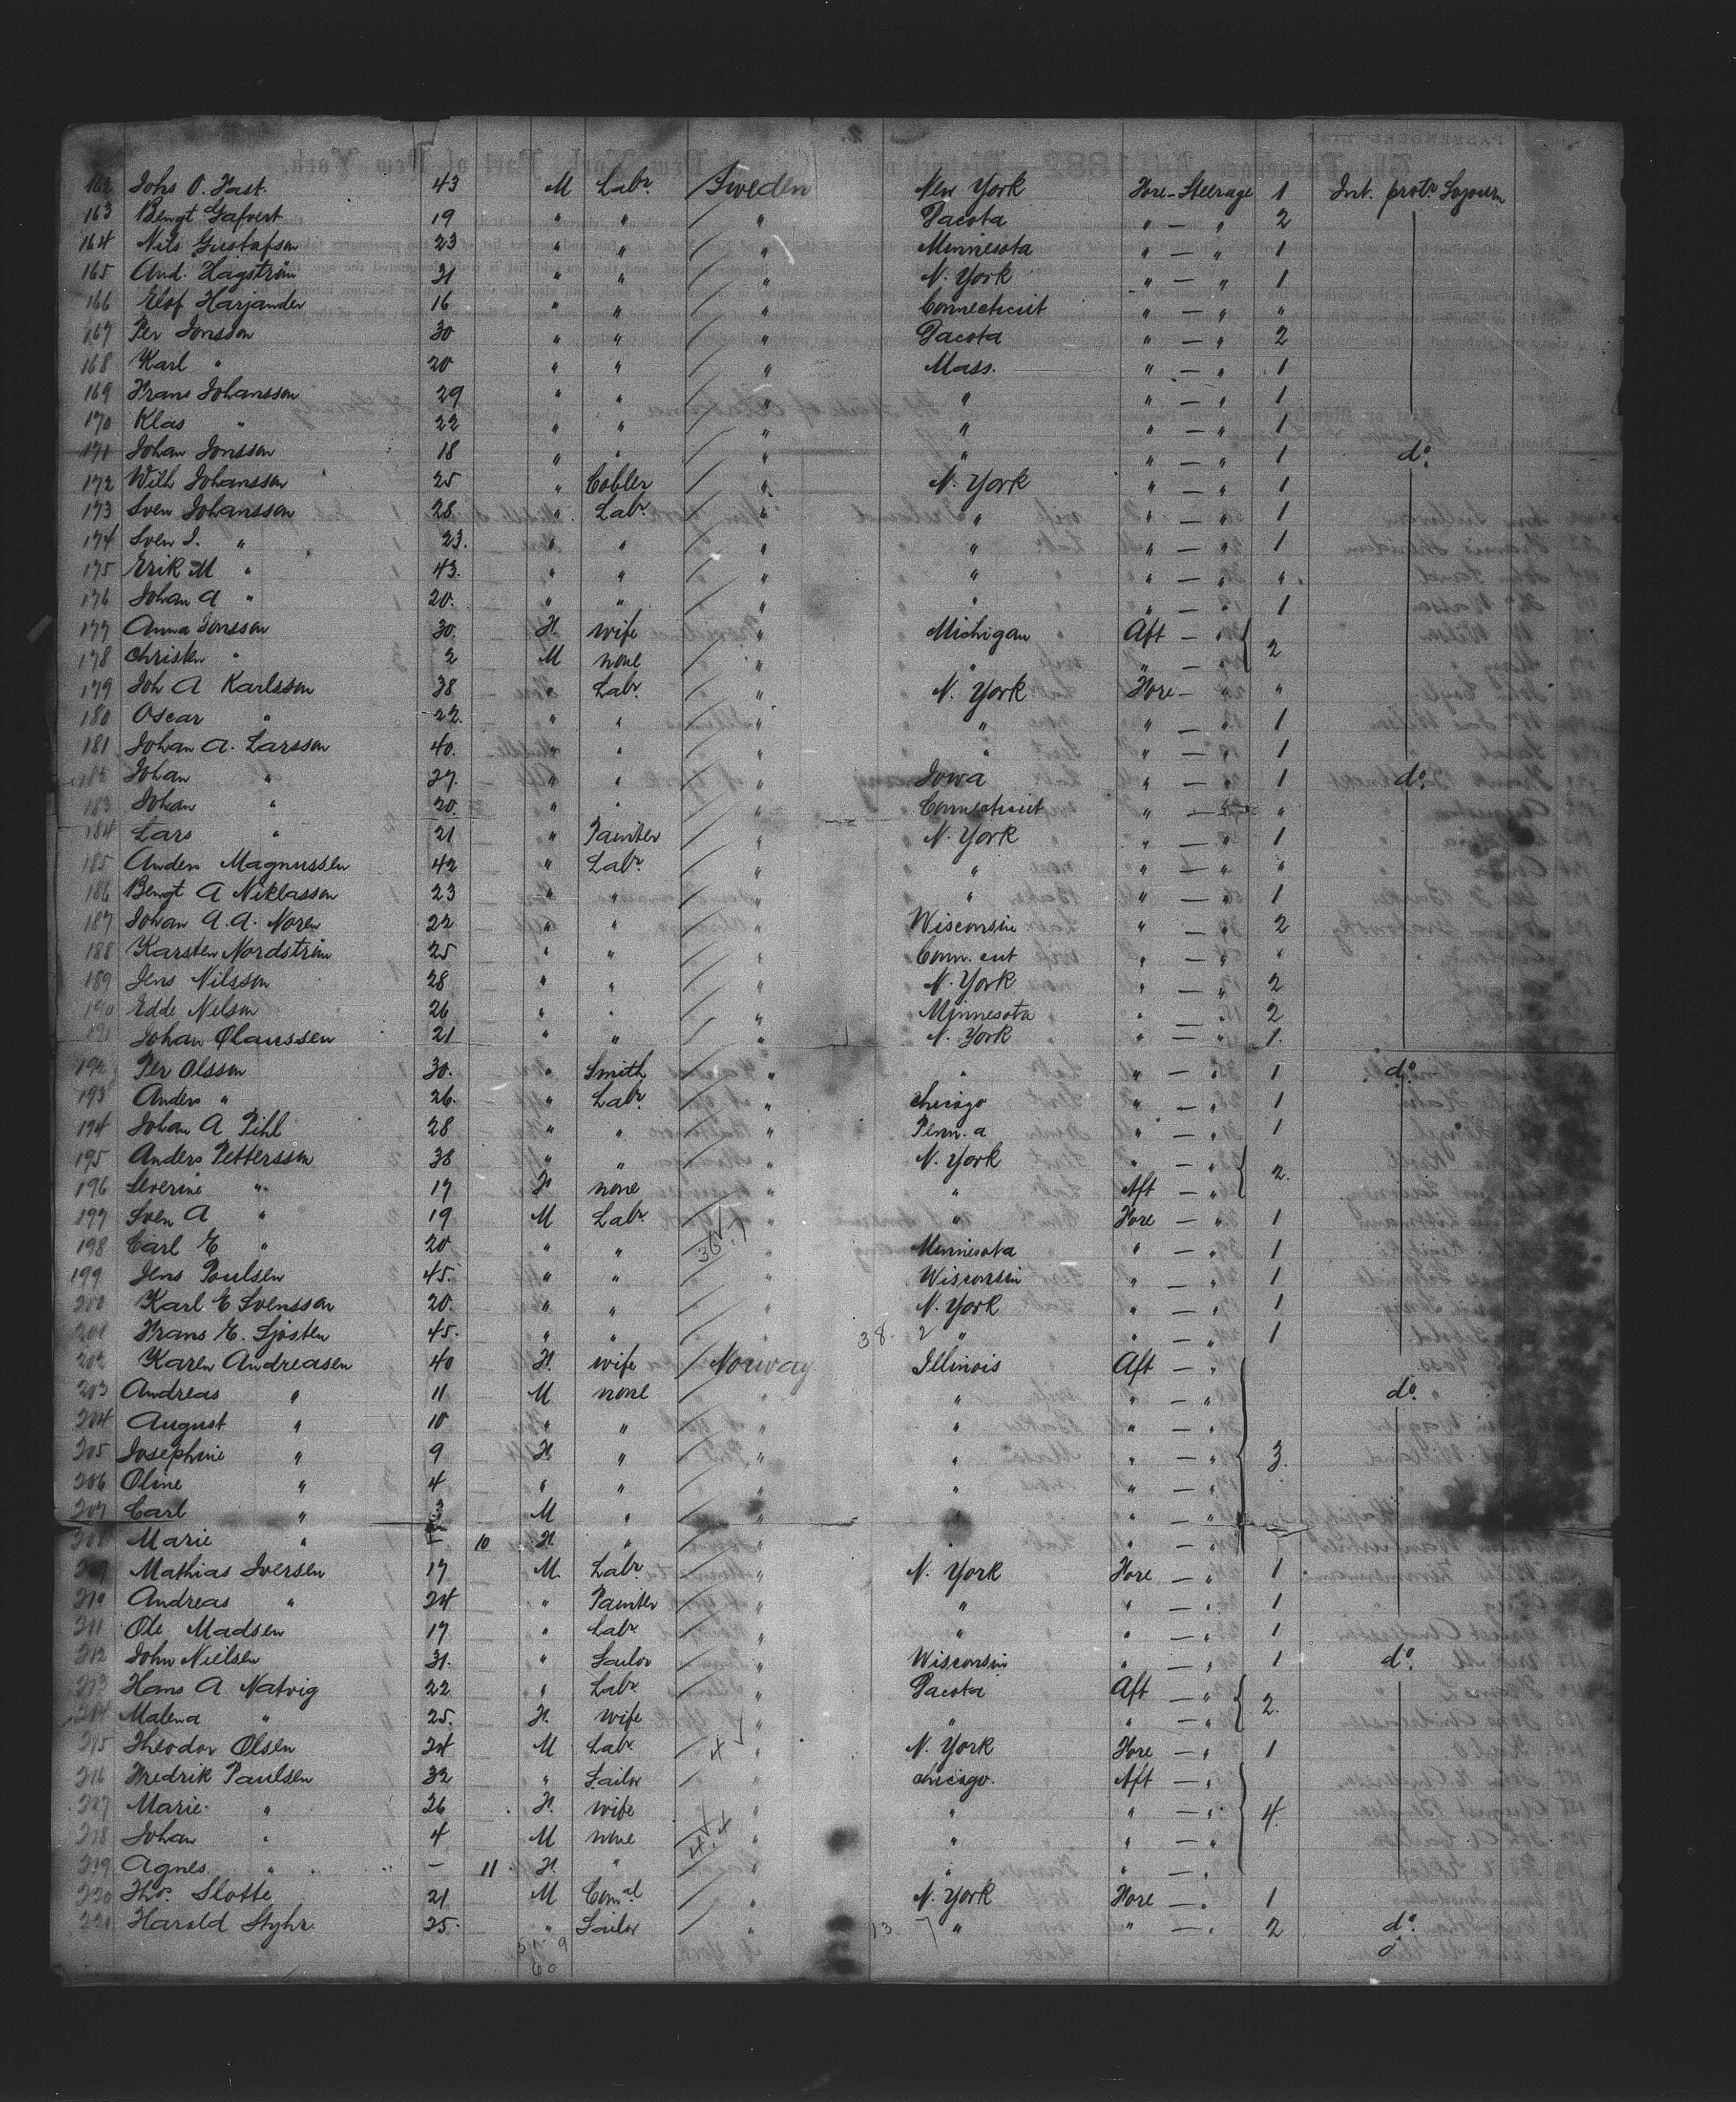 162 Johs O. Fast. 43 M Labr. Sweden New York Fore - Steerage 1 Int. prot. Sojourn
163 Bengt Gafvert 19 " " " Dacota " — " 2
164 Nils Gustafson 23 " " " Minnesota " — " 1
165 And. Hagström 21 " " " N. York " — " 1
166 Elof Harjander 16 " " " Connecticut " — " "
167 Per Jonsson 30 " " " Dacota " — " 2
168 Karl " 20 " " " Mass. " — " 1
169 Frans Johansson 29 " " " " " — " 1
170 Klas " 22 " " " " " — " 1
171 Johan Jonsson 18 " " " " " — " 1 do.
172 Wilh Johansson 25 " Cobler " N. York " — " 1
173 Sven Johansson 28 " Labr. " " " — " 1
174 Sven J. " 23. " " " " " — " 1
175 Erik M " 43. " " " " " — " "
176 Johan A " 20. " " " " " — " 1
177 Anna Jonsson 30. F. wife " Michigan Aft — " 2
178 Christen " 2 M none " " " — "
179 Joh A Karlsson 38 " Labr. " N. York Fore — " "
180 Oscar " 22. " " " " " — " 1
181 Johan A. Larsson 40. " " " " " — " 1
182 Johan " 27. " " " Iowa " — " 1 do.
183 Johan " 20. " " " Connecticut " — " "
184 Lars " 21 " Painter " N. York " — " 1
185 Anders Magnussen 42 " Labr. " " " — " "
186 Bengt A Niklasson 23 " " " " " — " 1
187 Johan A. A. Noren 22 " " " Wisconsin " — " 2
188 Karsten Nordström 25 " " " Conn. cut " — " "
189 Jens Nilsson 28 " " " N. York " — " 2
190 Edde Nelson 26 " " " Minnesota " — " 2
191 Johan Olaussen 21 " " " N. York " — " 1.
192 Per Olsson 30. " Smith " " " — " 1 do.
193 Anders " 26. " Labr. " Chicago " — " 1
194 Johan A Pihl 28 " " " Penn. a " — " 1
195 Anders Pettersson 38 " " " N. York " — " 2.
196 Severine " 17 F. none " " Aft — "
197 Sven A " 19 M Labr. " " Fore — " 1
198 Carl E " 20 " " 36 " Minnesota " — " 1
199 Jens Poulsen 45. " " " Wisconsin " — " 1
200 Karl E Svensson 20. " " " N. York " — " 1
201 Frans E. Sjösten 45. " " " 38. 2 " " — " 1
202 Karen Andreasen 40 F. wife Norway Illinois Aft — "
203 Andreas " 11 M none " " " — " do.
204 August " 10 " " " " " — "
205 Josephine " 9 F. " " " " — " 3.
206 Oline " 4 " " " " " — "
207 Carl " 3 M " " " " — "
208 Marie " — 10 F. " " " " — "
209 Mathias Iversen 17 M. Labr. " N. York Fore — " 1
210 Andreas " 24 " Painter " " " — " 1
211 Ole Madsen 17 " Labr. " " " — " 1
212 John Nielsen 31. " Sailor " Wisconsin " — " 1 do.
213 Hans A Natvig 22 " Labr. " Dacota Aft — " 2.
214 Malena " 25. F. wife " " " — "
215 Theodor Olsen 24 M Labr. 4 " N. York Fore — " 1
216 Fredrik Paulsen 32 " Sailor " Chicago. Aft — "
217 Marie. " 26 F. wife " " " — " 4.
218 Johan " 4 M none " " " — "
219 Agnes " — 11 F. " " " " — "
220 Ths. Slotte 21 M Comal " N. York Fore — " 1
221 Harald Styhr. 25. " Sailor " 13. 7 " " — " 2 do.
51. 9
60